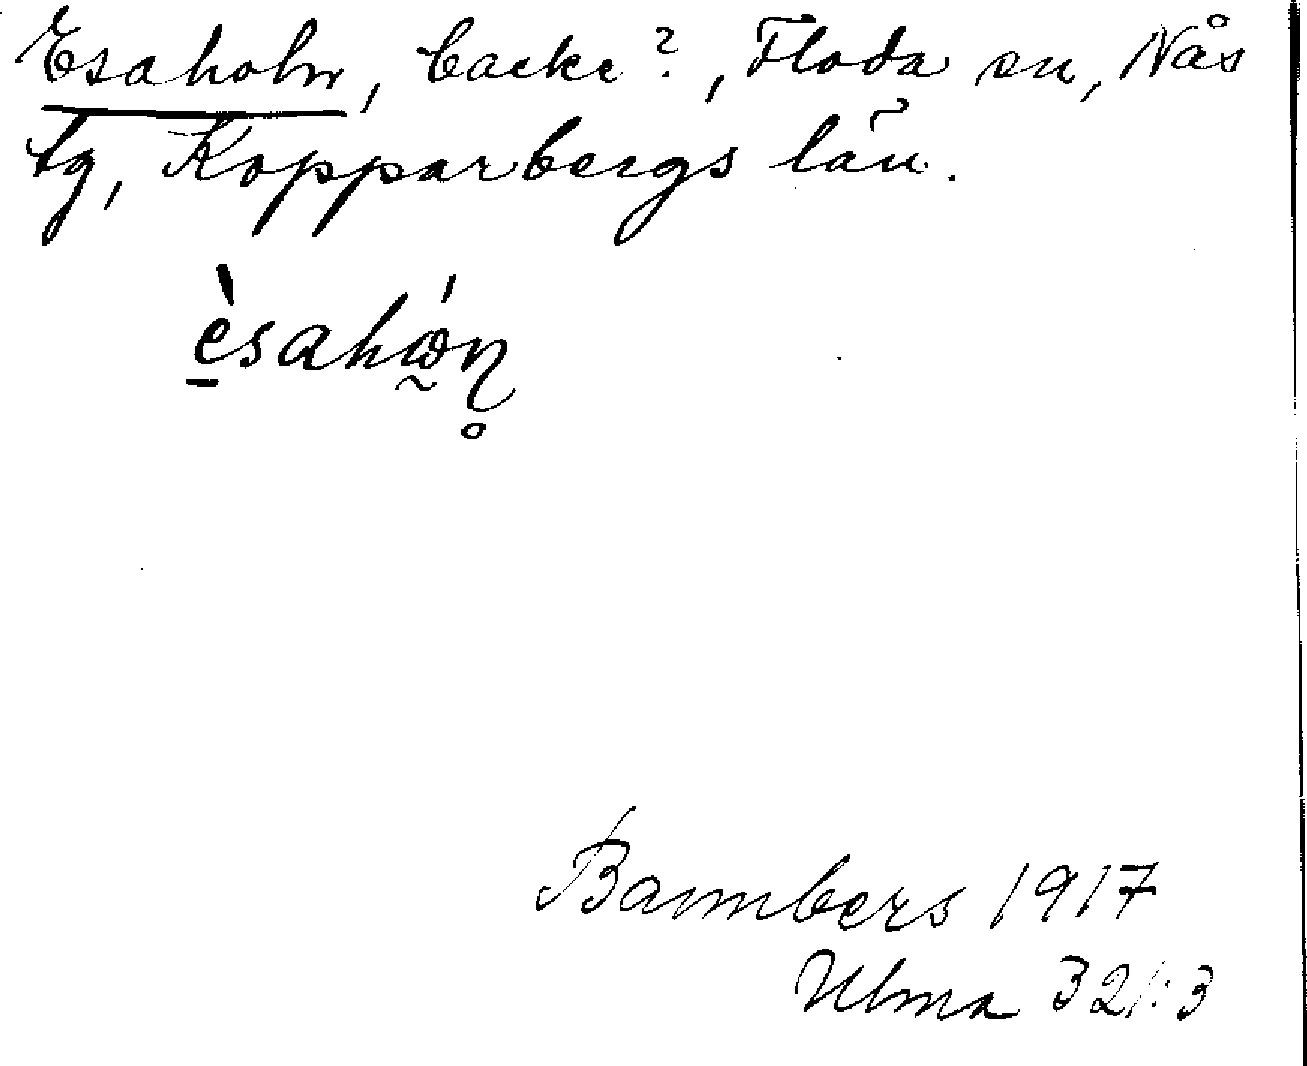 Esaholn, backe?, Floda sn, Nås
tg, Kopparbergs län.
Bannbers 1917
Ulma 321:3